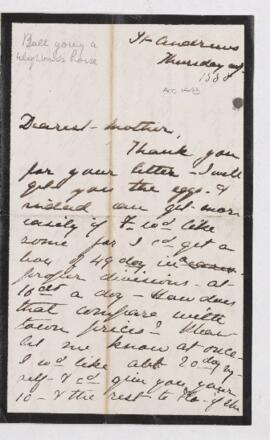 Ball going a
neighbours house
St Andrews
Thursday
1888
Acc
Dearest Mother,
Thank you
for your letter - I will
get you the eggs - &
indeed can get more
easily if F. wd. like
some for I cd. get a
box of 49 doz in a
proper divisions - at
10d a doz - How does
that compare with
town prices? Please
let me know at once -
I wd. like abt 20 doz my-
self - & cd. give you your
10 - & the rest to Flo - if she